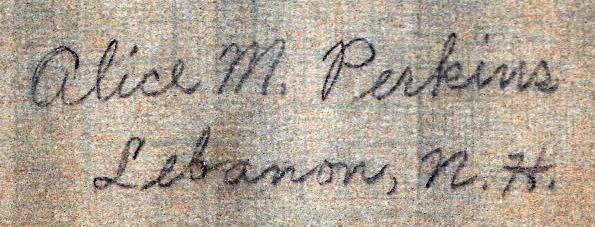 Alice M. Perkins
Lebanon, N. H.